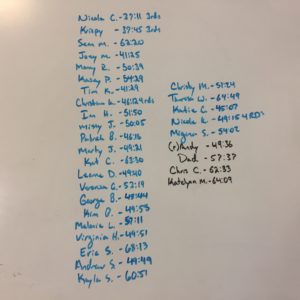 Nicole C. - 37:11 3rds
Krispy - 37:45 3rds
Sean M. - 62:20
Joey M. - 41:25
Manny Z. - 50:39
Kasey P. - 54:29
Tim K. - 41:29
Ian H. - 51:50
Missy J. - 50:05
Patrick B. - 46:16
Marty J. - 49:21
Kat C. - 63:30
Leanna D. - 49:40
Veronica G. - 52:19
George B. - 48:44
Kim O. - 49:53
Melanie L. - 57:11
Virginia H. - 49:51
Eric S. - 68:13
Andrew S. - 49:49
Kayla S. - 60:51
Christy M. - 51:24
Theresa W. - 64:49
Katie C. - 45:07
Nicole R. - 49:15 4 RDS
Megan S. - 54:02
(r)Andy - 49:36
Dad - 57:37
Chris C. - 62:33
Katelynn M. - 64:09